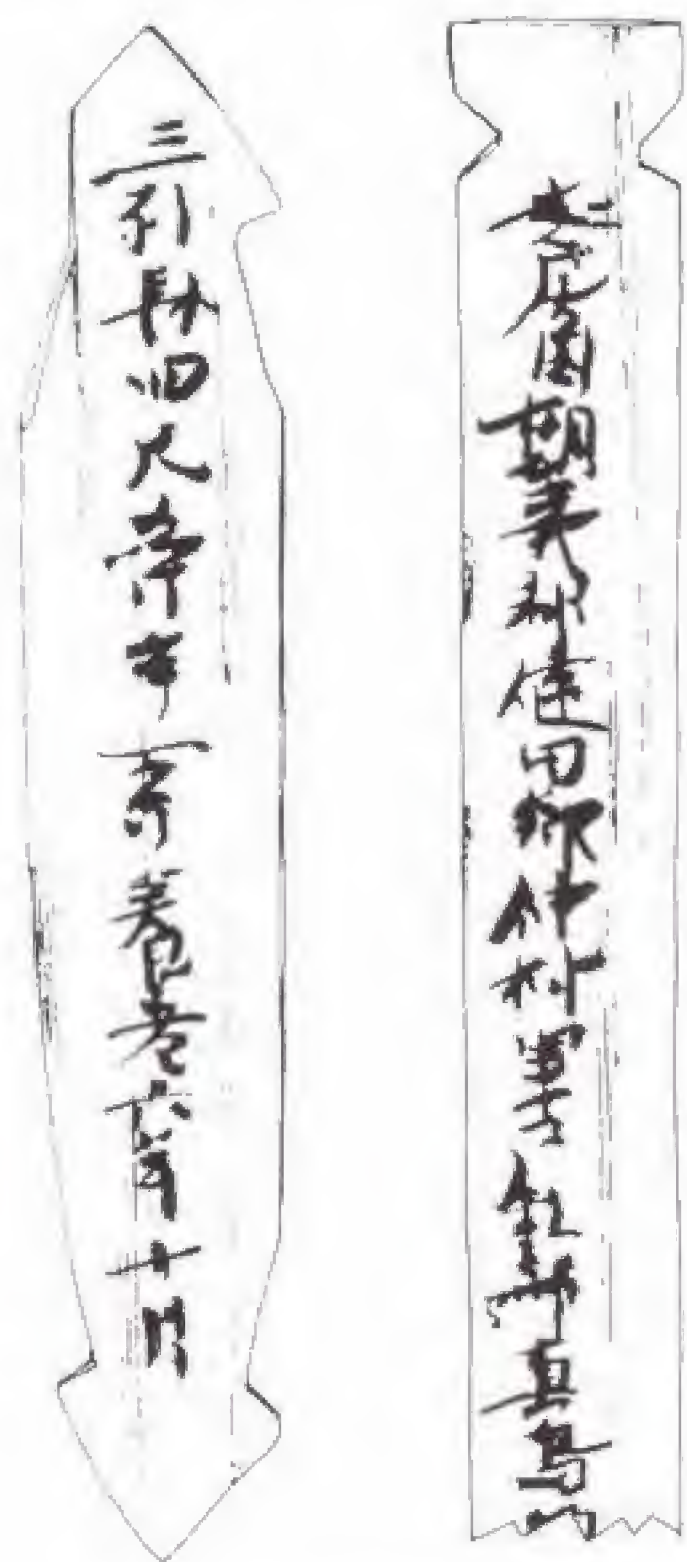 安房国朝夷郡健田郷仲村里戸私部真鳥
三列長四尺五寸束一束養老六年十月